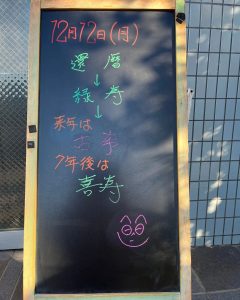 12月12日(月)
還暦
↓
緑寿
↓
来年は
古希
7年後は
喜寿